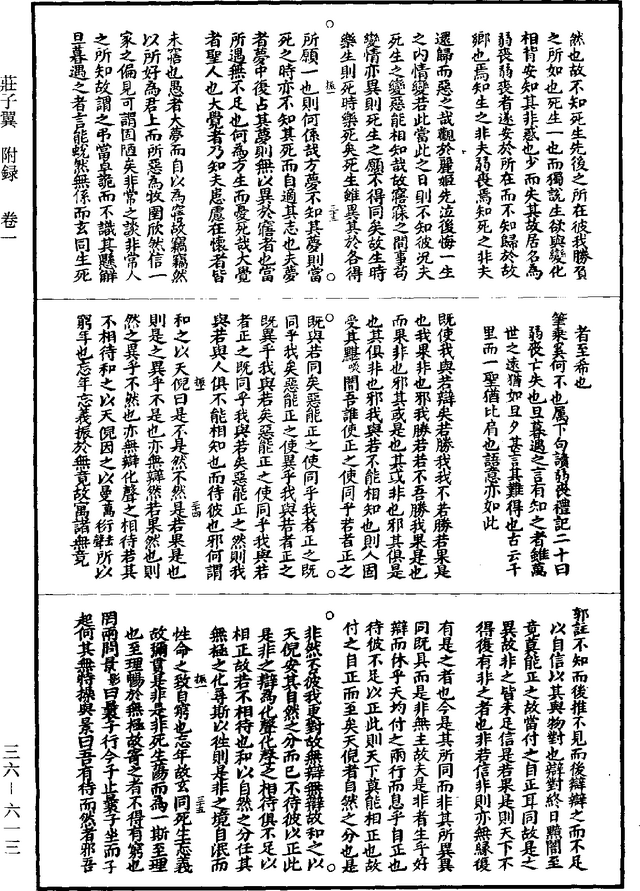 然也故不知死生先後之所在彼我勝負
之所如也死生一也而獨說生欲與變化
相背安知其非惑也少而失其故居名為
弱喪弱喪者遂安於所在而不知歸於故
鄉也焉知生之非夫弱喪焉知死之非夫
還歸而惡之哉觀於麗姬先泣後悔一生
之內情變若此當此之日則不知彼況夫
死生之變惡能相知哉故寤寐之間事苟
變情亦異則死生之願不得同矣故生時
樂生則死時樂死矣死生雖異其於各得
所願一也則何係哉方夢不知其夢則當
死之時亦不知其死而自適其志也夫夢
者夢中復占其夢則無以異於寤者也當
所遇無不足也何為方生而憂死哉大覺
者聖人也大覺者乃知夫患慮在懷者皆
未寤也愚者大夢而自以為寤故竊竊然
以所好為君上而所惡為牧圉欣然信一
家之偏見可謂固陋矣非常之談非常人
之所知故謂之弔當卓詭而不識其懸解
旦暮遇之者言能蛻然無係而玄同生死
者至希也
筆乘奚何不也屬下句讀弱喪禮記二十曰
弱喪亡失也旦暮遇之言有知之者雖萬
世之遠猶如旦夕甚言其難得也古云千
里而一聖猶比肩也語意亦如此
既使我與若辯矣若勝我我不若勝若果是
也我果非也邪我勝若若不吾勝我果是也
而果非也邪其或是也其或非也邪其俱是
也其俱非也邪我與若不能相知也則人固
受其黮闇吾誰使正之使同乎若者正之
既與若同矣惡能正之使同乎我者正之既
同乎我矣惡能正之使異乎我與若者正之
既異乎我與若矣惡能正之使同乎我與若
者正之既同乎我與若矣惡能正之然則我
與若與人俱不能相知也而待彼也邪何謂
和之以天倪曰是不是然不然是若果是也
則是之異乎不是也亦無辯然若果然也則
然之異乎不然也亦無辯化聲之相待若其
不相待和之以天倪因之以曼衍所以
窮年也忘年忘義振於無竟故寓諸無竟
郭註不知而後推不見而後辯辯之而不足
以自信以其與物對也辯對終日黮闇至
竟莫能正之故當付之自正耳同故是之
異故非之皆未足信是若果是則天下不
得復有非之者也非若信非則亦無緣復
有是之者也今是其所同而非其所異異
同既具而是非無主故夫是非者生乎好
辯而休乎天均付之兩行而息乎自正也
待彼不足以正此則天下莫能相正也故
付之自正而至矣天倪者自然之分也是
非然否彼我更對故無辯無辯故和之以
天倪安其自然之分而已不待彼以正此
是非之辯為化聲化聲之相待俱不足以
相正故若不相待也和以自然之分任其
無極之化尋斯以往則是非之境自泯而
性命之致自窮也忘年故玄同死生忘義
故彌貫是非是非死生蕩而為一斯至理
也至理暢於無極故寄之者不得有窮也
罔兩問景曰曩子行今子止曩子坐今子
起何其無特操與景曰吾有待而然者邪吾
莊子翼 附録 卷一
三六－六一三